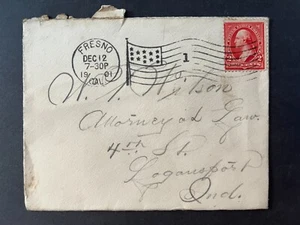 FRESNO
DEC 12
7-30P
19 01
CAL.
1
2 2
W. P. Wilson
Attorney at Law.
4th St.
Logansport
Ind.